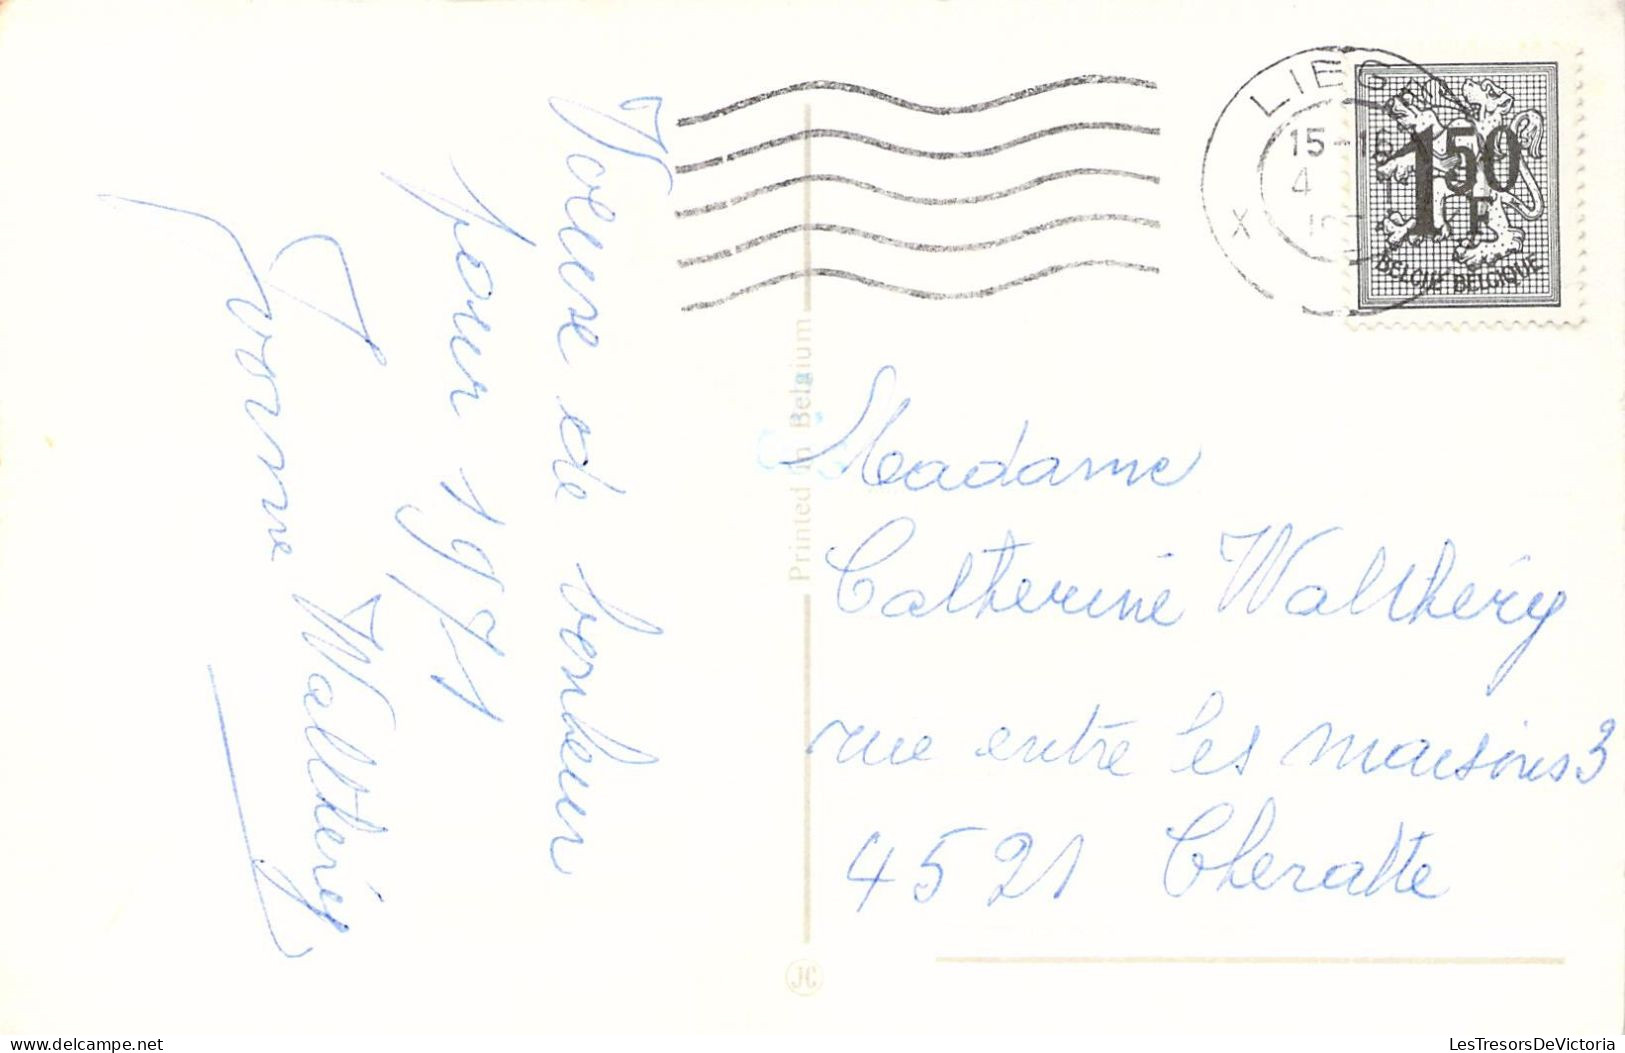 Voeux de bonheur
pour 1971
Yvonne Walthéry
Printed in Belgium
JC
LIEG
15-16
4
X
1 50
F
BELGIË BELGIQUE
Madame
Catherine Walthéry
rue entre les maisons 3
4521 Cheratte
www.delcampe.net
LesTresorsDeVictoria